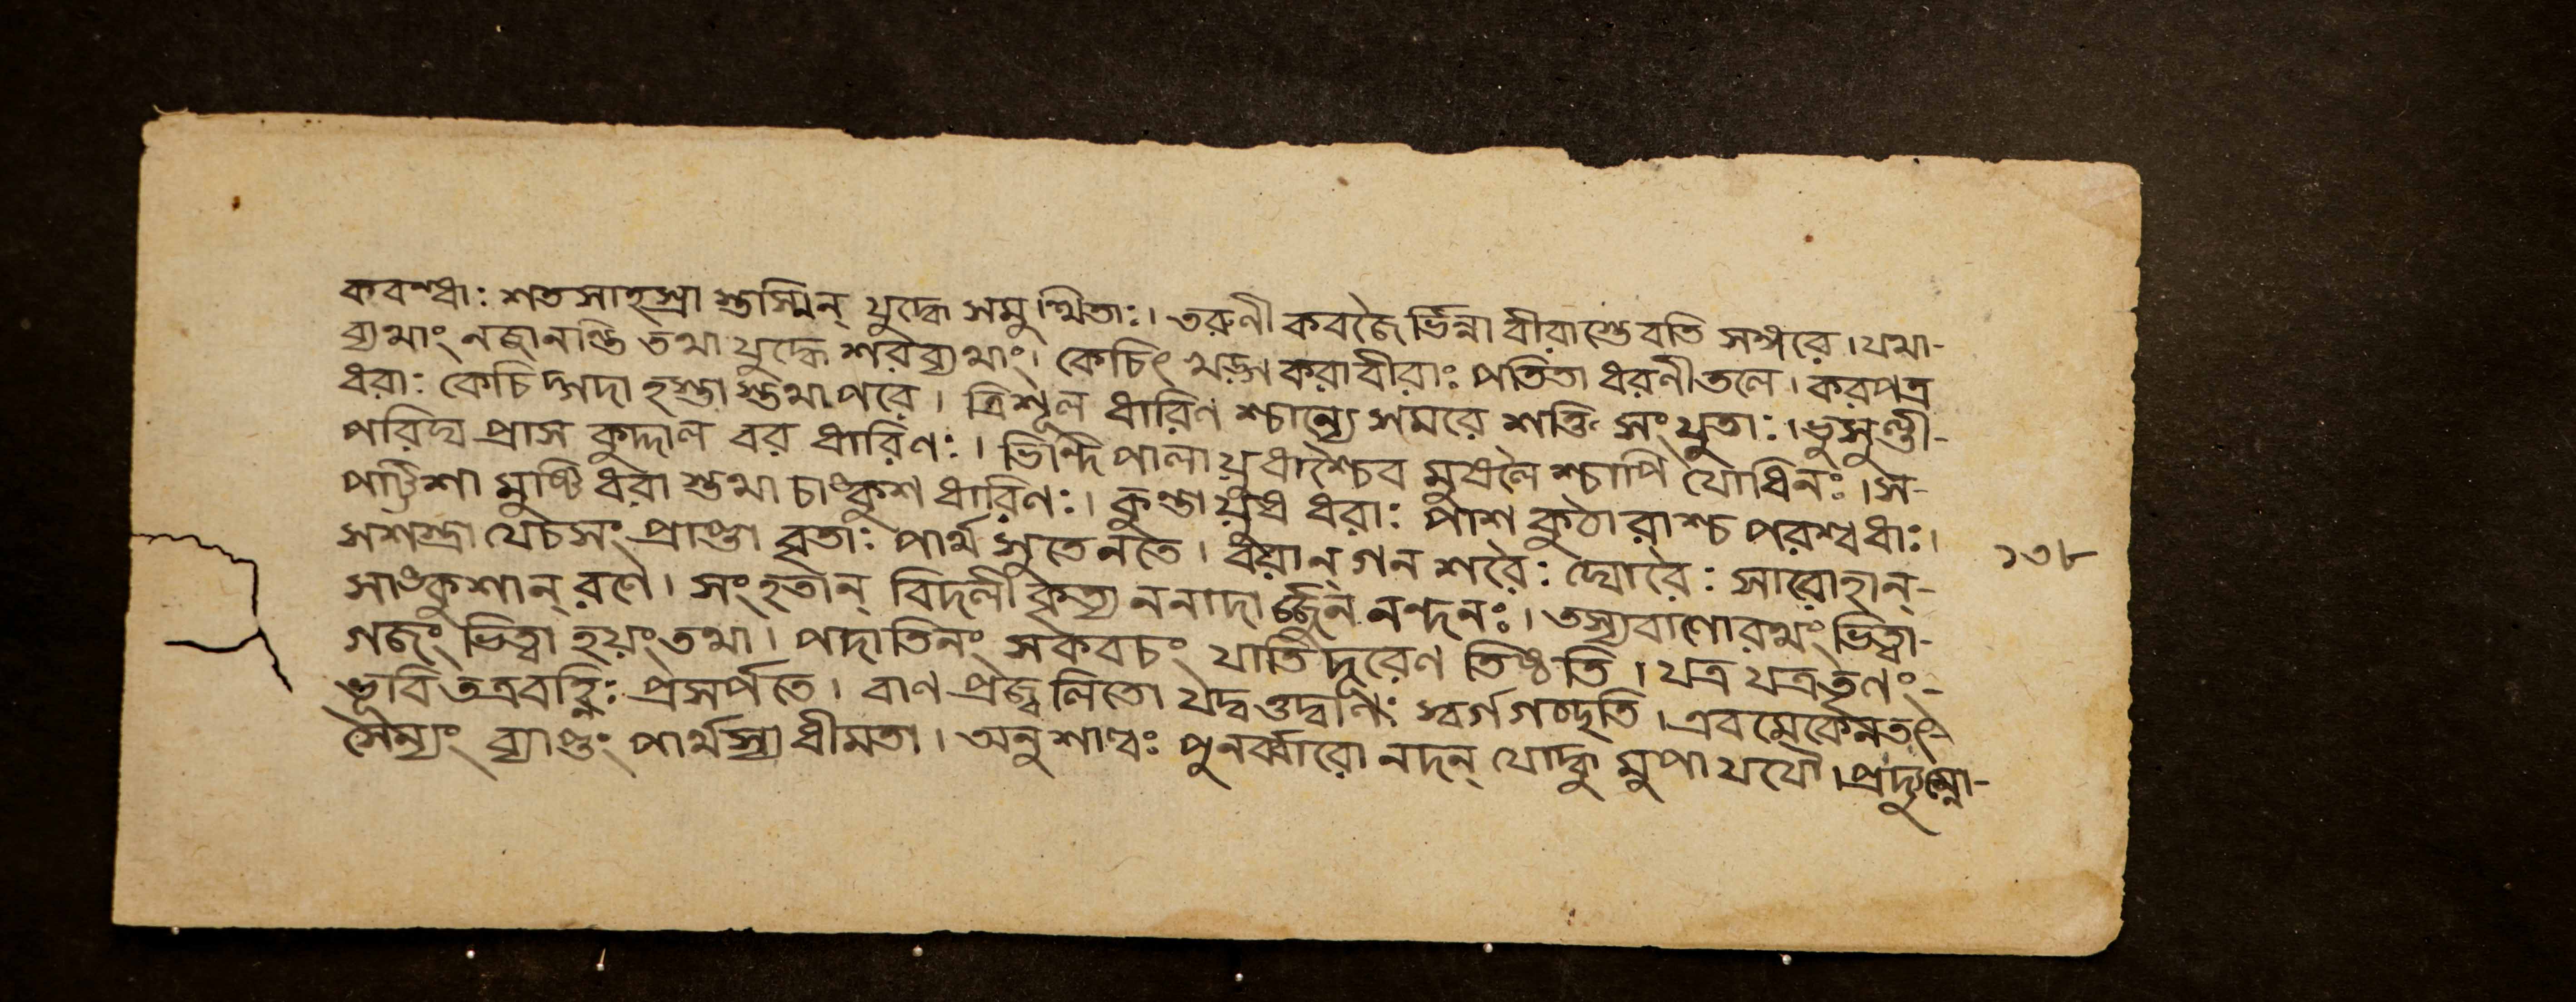 কবন্ধাঃ শতসাহস্রা স্তস্মিন্ যুদ্ধে সমুত্থিতাঃ। তরুণী কবজৈর্ভিন্না বীরাস্তেবতি সঙ্গরে। যথা-
ব্যথাং নজানন্তি তথা যুদ্ধে শরব্যথাং। কেচিৎ খড়্গ করাবীরাঃ পতিতা ধরণীতলে। করপত্র
ধরাঃ কেচিদ্গদা হস্তা স্তথাপরে। ত্রিশূল ধারিণ শ্চান্যে সমরে শক্তি সংযুতাঃ। ভুসুণ্ডী-
পরিঘ প্রাস কুদ্দাল বর ধারিণঃ। ভিন্দিপালায়ুধাশ্চৈব মুষলৈ শ্চাপি যোধিনঃ। স-
পট্টিশা মুষ্টি ধরা স্তথা চাঙ্কুশ ধারিণঃ। কুন্তায়ুধ ধরাঃ পাশ কুঠারাশ্চ পরশ্বধাঃ।
সশস্ত্রা যেচসং প্রাপ্তা বৃতাঃ পার্থ সুতেনতে। হয়ান্ গন শরৈঃ ঘোরৈঃ সারোহান্-
সাঙ্কুশান্ রণে। সংহতান্ বিদলীকৃত্য ননাদার্জ্জুন নন্দনঃ। তস্যবাণোরথং ভিত্বা-
গজং ভিত্বা হয়ংতথা। পদাতিনং সকবচং যাতি দূরেণ তিষ্ঠতি। যত্র যত্রতৃণং-
ভূবি তত্রবহ্নিঃ প্রসর্পতে। বাণ প্রজ্বলিতো যদ্বত্তদ্বৰ্ণিঃ স্বর্গ গচ্ছতি। এবমেকেনতৎ
সৈন্যং ব্যাপ্তং পার্থস্য ধীমতা। অনুশাল্বঃ পুনর্ব্বীরো নদন্ যোদ্ধু মুপা যযৌ। প্রদ্যুম্নো-
১৩৮